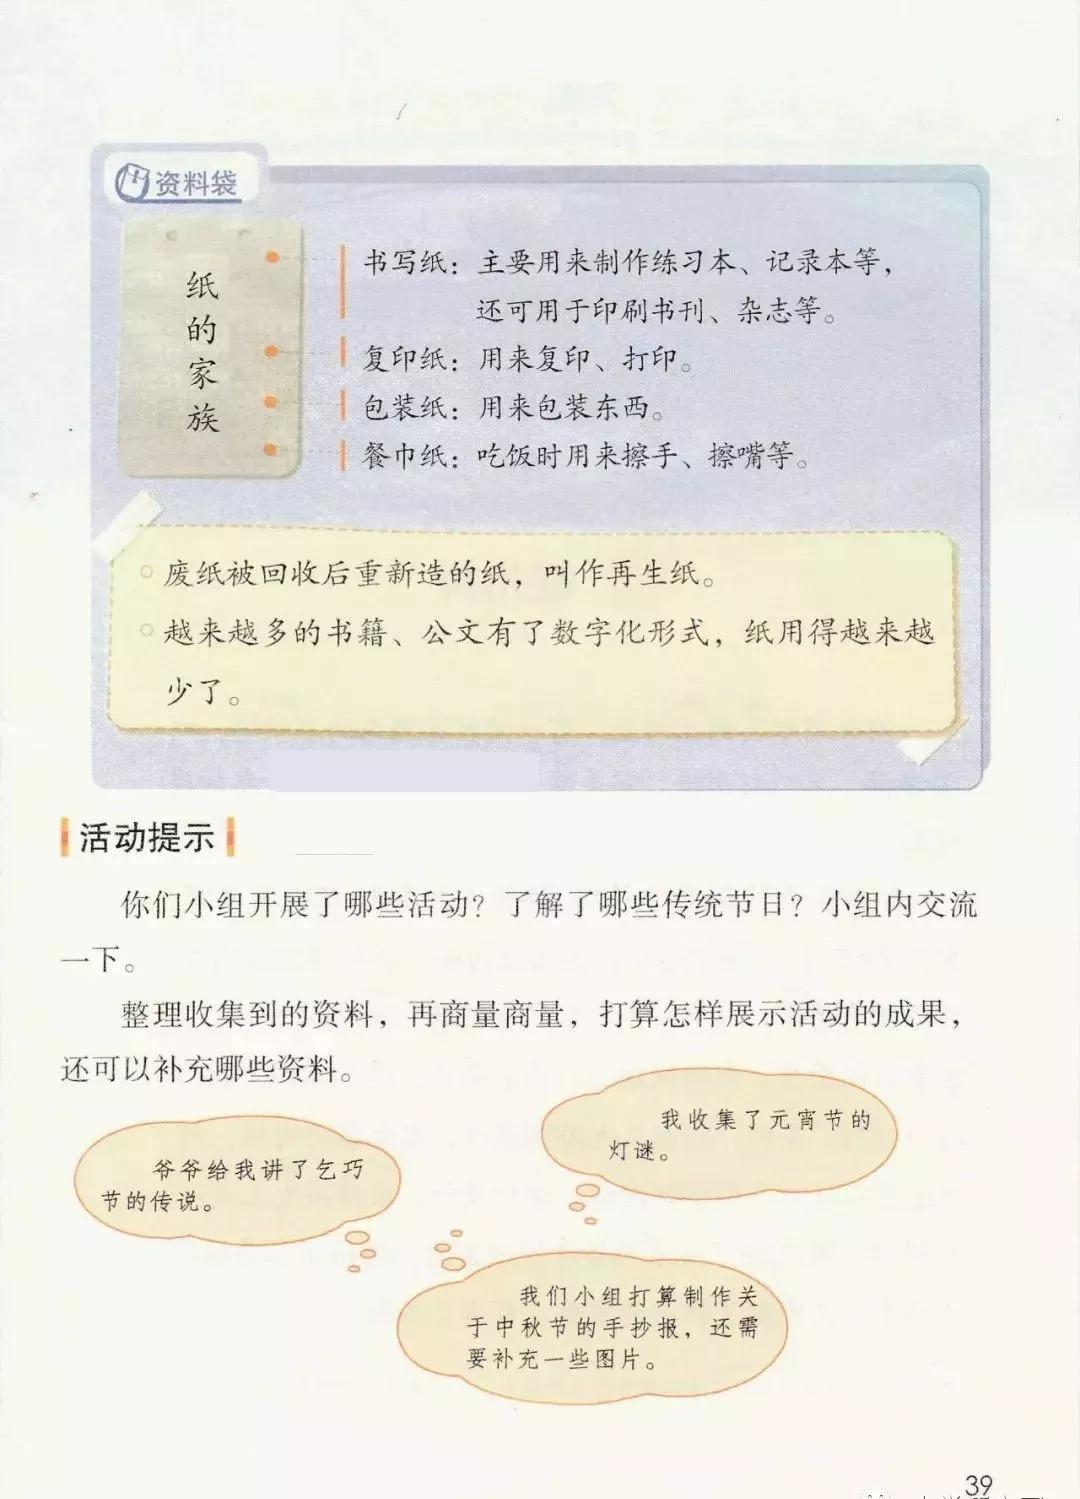 资料袋
纸的家族
书写纸：主要用来制作练习本、记录本等，
还可用于印刷书刊、杂志等。
复印纸：用来复印、打印。
包装纸：用来包装东西。
餐巾纸：吃饭时用来擦手、擦嘴等。
废纸被回收后重新造的纸，叫作再生纸。
越来越多的书籍、公文有了数字化形式，纸用得越来越
少了。
活动提示
你们小组开展了哪些活动？了解了哪些传统节日？小组内交流
一下。
整理收集到的资料，再商量商量，打算怎样展示活动的成果，
还可以补充哪些资料。
我收集了元宵节的
灯谜。
爷爷给我讲了乞巧
节的传说。
我们小组打算制作关
于中秋节的手抄报，还需
要补充一些图片。
39